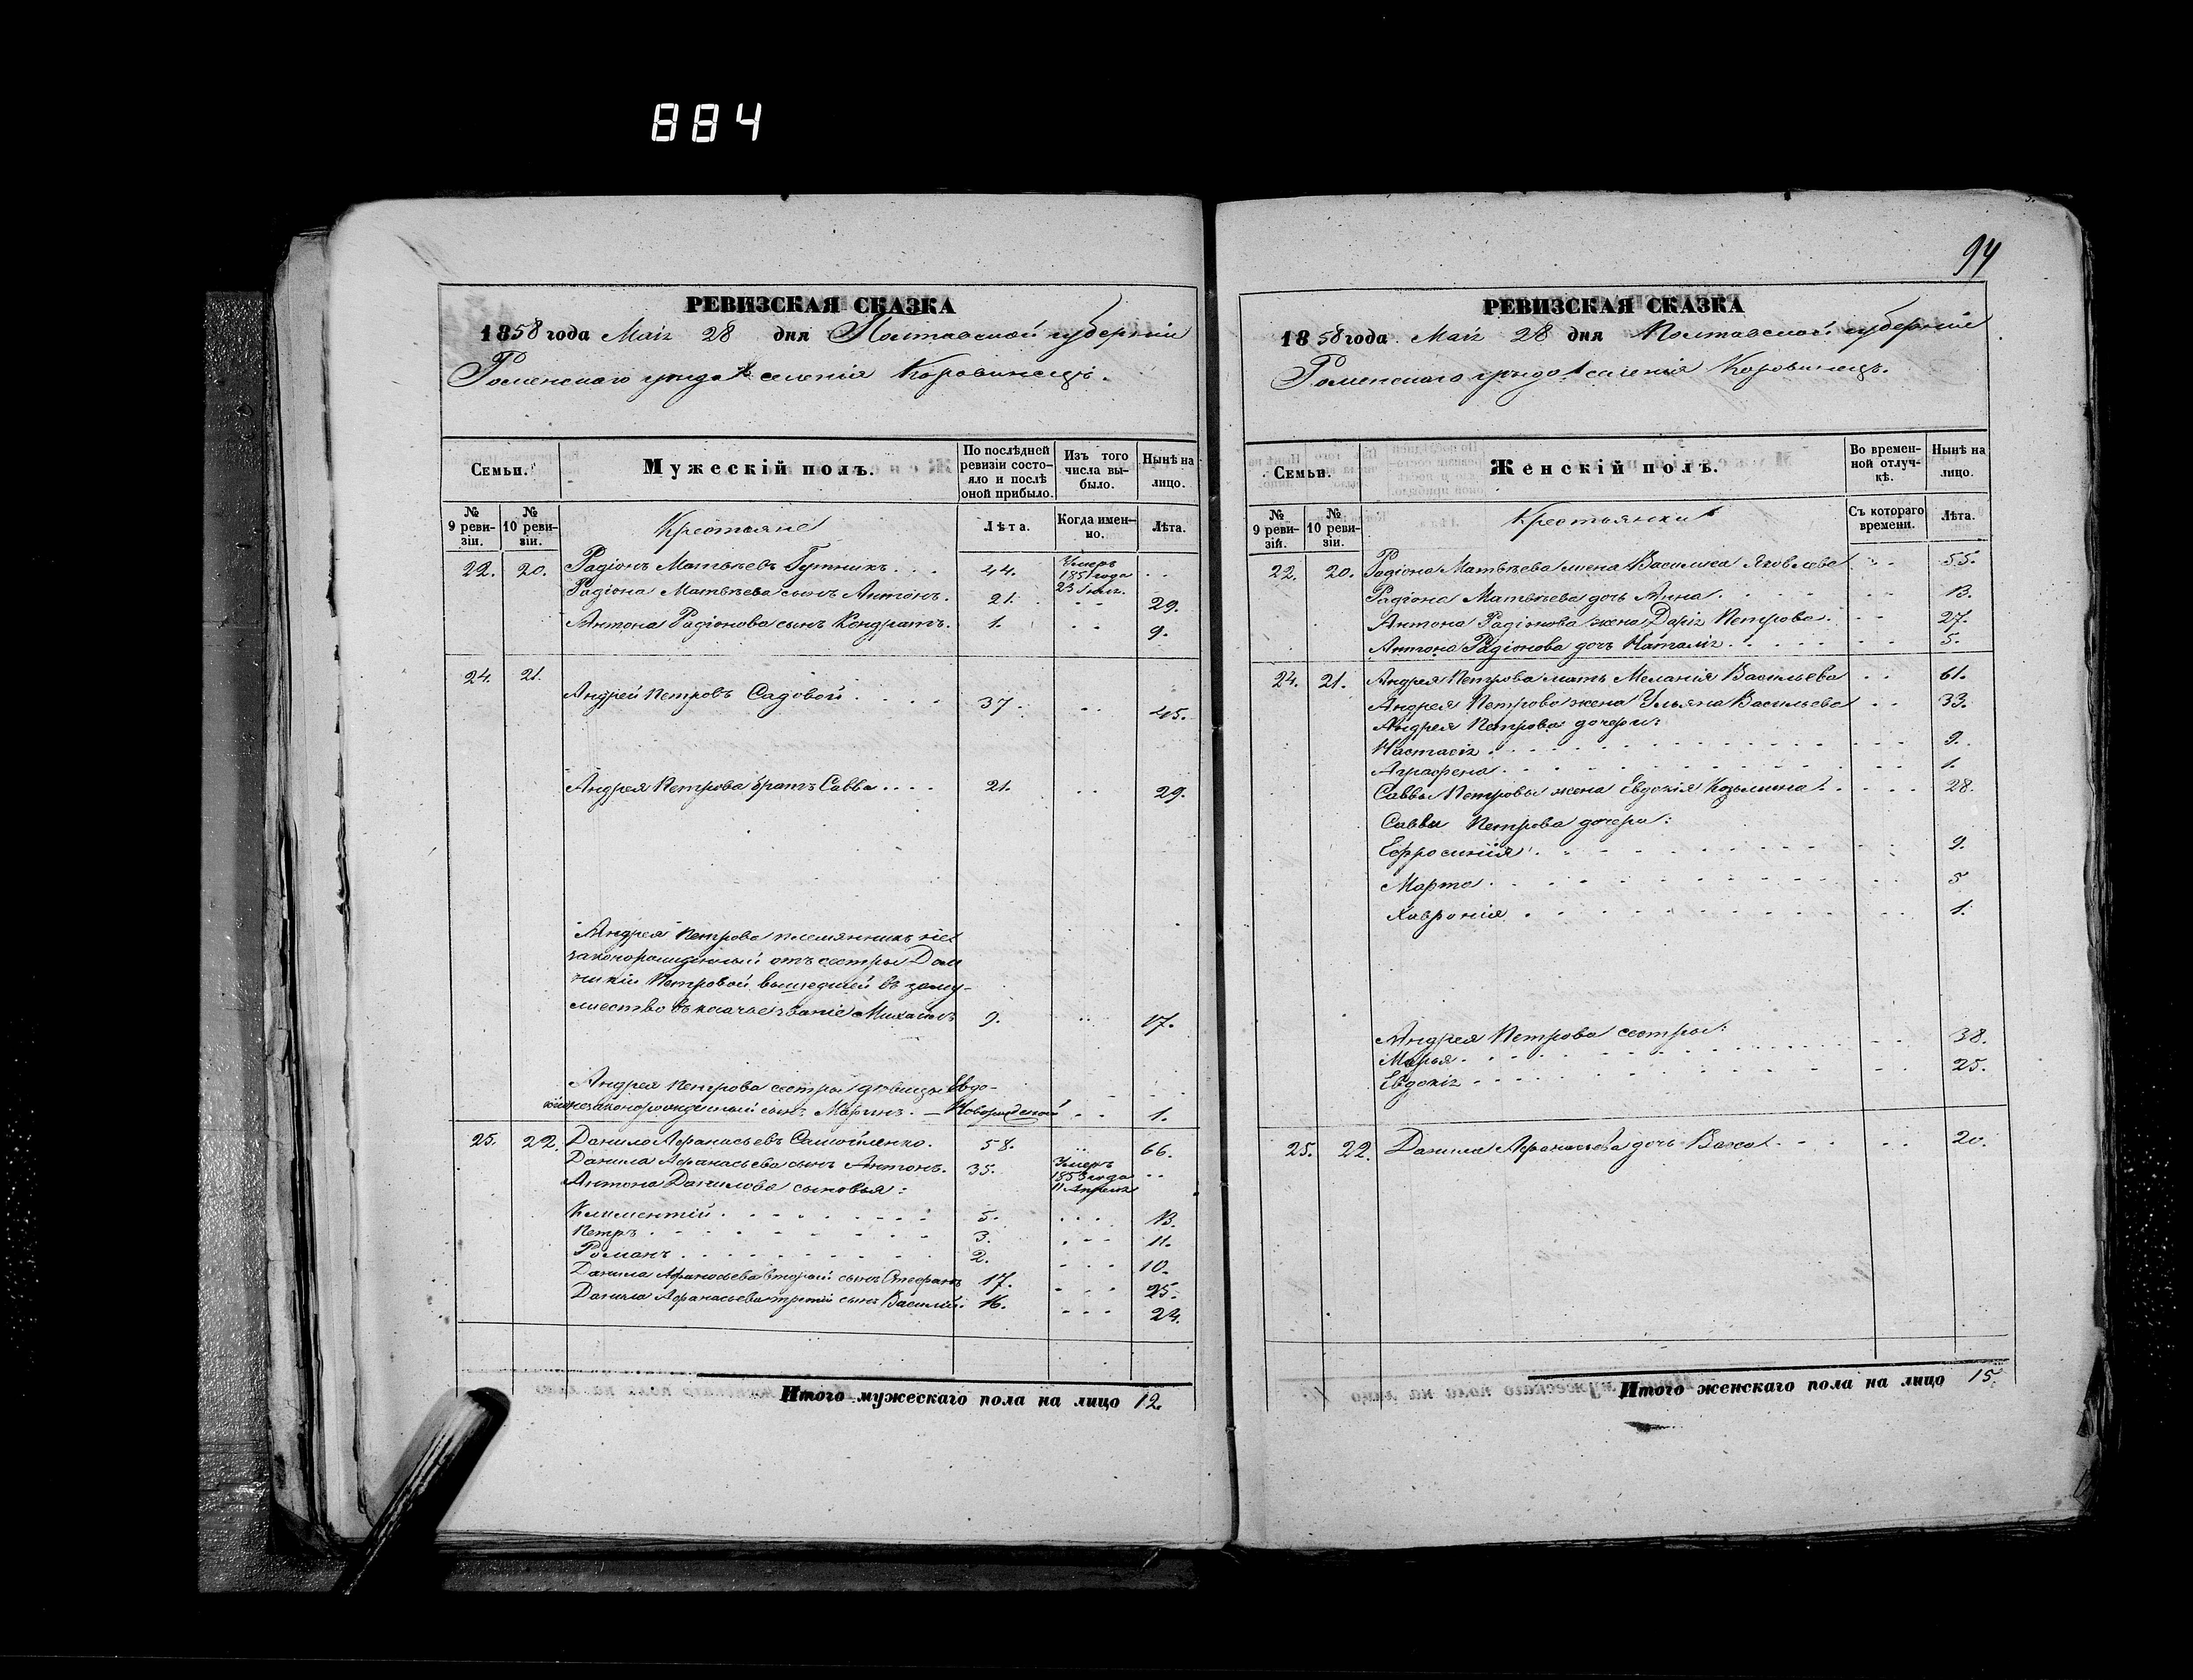 884
94
РЕВИЗСКАЯ СКАЗКА
1858 года Маія 28 дня Полтавской губерніи
Роменскаго уезда селенія Коровинецъ.
Семьи.
Мужескій полъ.
По послѣдней ревизіи состо-
яло и послѣ оной прибыло.
Изъ того числа вы-
было.
Нынѣ на лицо.
№ 9 реви-
зіи.
№ 10 реви-
зіи.
Крестьяне
Лѣта.
Когда имен-
но.
Лѣта.
22. 20. Радіонъ Матвѣевъ Гутникъ . . . 44. Умеръ 1851 года 23 Іюля. . .
Радіона Матвѣева сынъ Антонъ. 21. . . 29.
Антона Радіонова сынъ Кондратъ. 1. . . 9.
24. 21.
Андрей Петровъ Садовой . . . . 37. . . 45.
Андрея Петрова братъ Савва . . . . 21. . . 29.
Андрея Петрова племянникъ не
законорожденный отъ сестры Дом
никіи Петровой вышедшей въ заму-
жество въ казачье званіе Михаилъ 9. . . 17.
Андрея Петрова сестры дѣвицы Евдо-
кіи незаконорожденный сынъ . — Новорожденой . . 1.
25. 22. Данило Афанасьевъ Самойленко. 58. ... 66.
Данила Афанасьева сынъ Антонъ. 35. Умеръ 1853 года 11 Апреля . .
Антона Данилова сыновья:
Климентій . . . . . . . 5. . . . . 13.
Петръ . . . . . . . . 3. . . . 11.
Романъ . . . . . . . 2. . . . 10.
Данила Афанасьева второй сынъ Стефанъ 17. . . . 25.
Данила Афанасьева третій сынъ Василій. 16. . . . 24.
Итого мужескаго пола на лицо 12.
РЕВИЗСКАЯ СКАЗКА
1858 года Маія 28 дня Полтавской губерніи
Роменскаго уезда селенія Коровинецъ.
Семьи.
Женскій полъ.
Во времен-
ной отлуч-
кѣ.
Нынѣ на лицо.
№ 9 реви-
зій.
№ 10 реви-
зіи.
Крестьянки
Съ котораго времени.
Лѣта.
22. 20. Радіона Матвѣева жена Василиса Яковлева . . 55.
Радіона Матвѣева дочь Анна . . . . . . 13.
Антона Радіонова жена Дарія Петрова . . . 27.
Антона Радіонова дочь Наталія . . . . . . 5.
24. 21. Андрея Петрова мать Меланія Васильева . . 61.
Андрея Петрова жена Ульяна Васильева . . 33.
Андрея Петрова дочери:
Настасія . . . . . . . . . . 9.
Аграфена . . . . . . . . . . 1.
Саввы Петровы жена Евдокія Козьмина . . . . 28.
Саввы Петрова дочери:
Ефросинія . . . . . . . . . . 9.
Марта . . . . . . . . . . 5
Хавронія . . . . . . . . . . 1.
Андрея Петрова сестры:
Марья . . . . . . . . . . 38.
Евдокія . . . . . . . . . . 25.
25. 22. Данила Афанасьева дочь Васса . . . . . 20.
Итого женскаго пола на лицо 15.